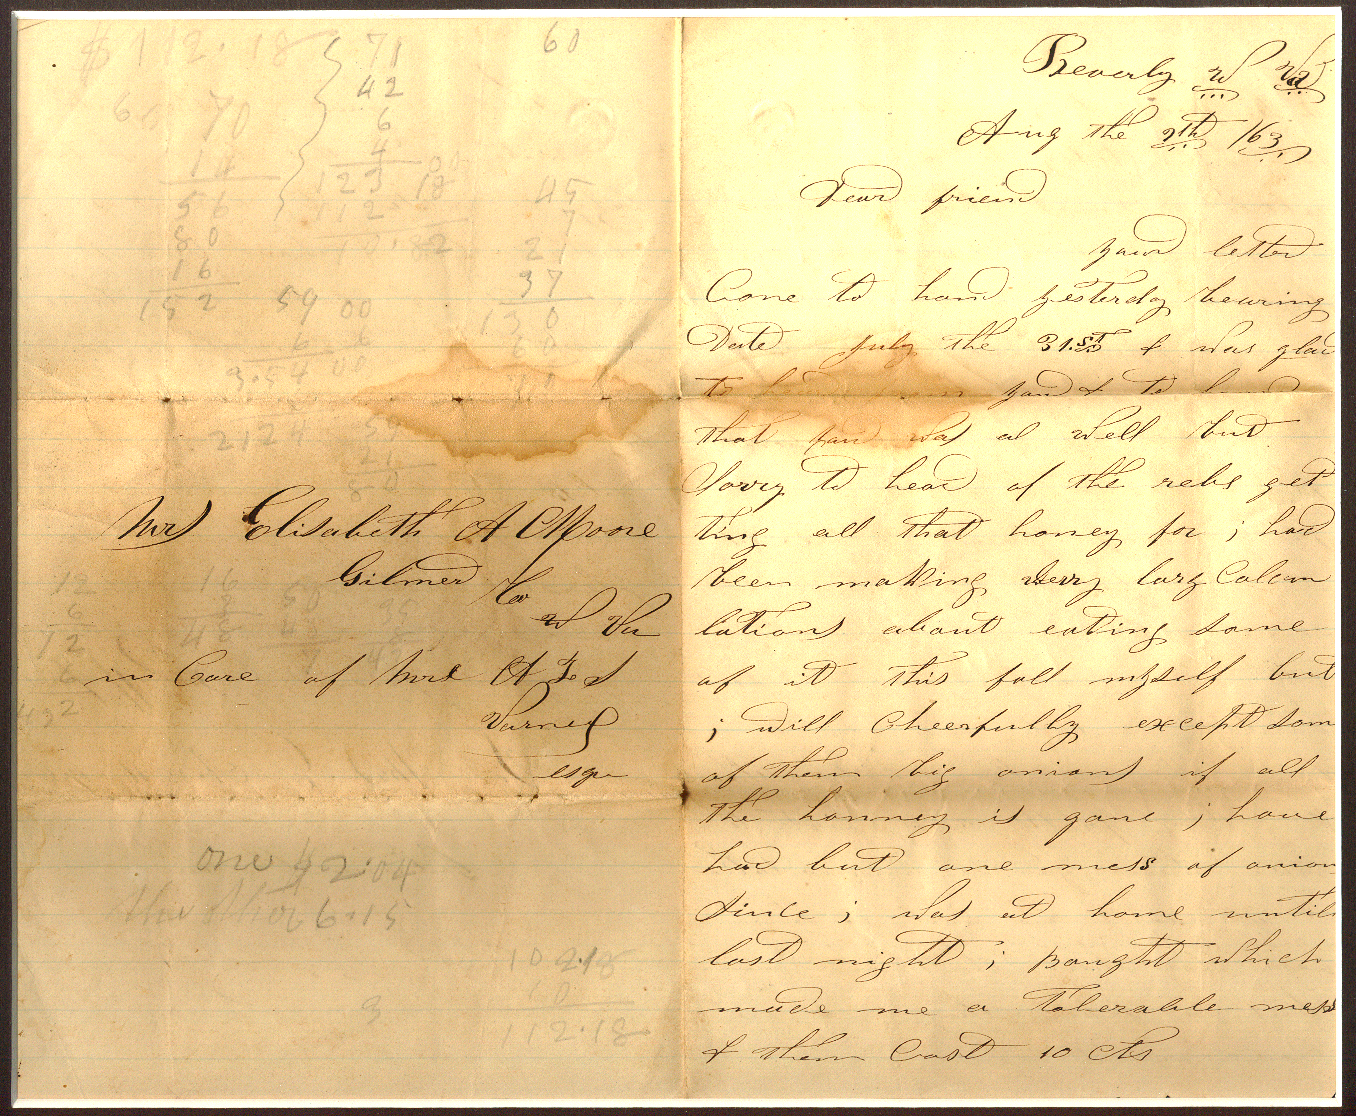 $112.18 71 60
42
70 6
14 4
56 123 00
80 112 18 45
16 10.82 7
152 59 00 21
37
130
3.54 00
2124
Mrs Elisabeth A Moore
Gilmer Co
W Va
in Care of Mrs A
Varner
esqr
12 16 50
6
72 48
6
432
one 42.04
the other 6.15
102.18
10
3 112.18
Beverly W Va
Aug the 7th /63
Dear friend
your letter
Come to hand yesterday bearing
Date July the 31.st & was glad
to hear from you & to hear
that you was al well but
Sorry to hear of the rebs get
ting all that honey for i had
been making very larg Calcu
lations about eating some
of it this fall myself but
i will Cheerfully except som
of them big onions if all
the honney is gone i have
had but one mess of onion
Since i was at home until
last night i bought which
made me a Tolerable mess
& them Cost 10 cts